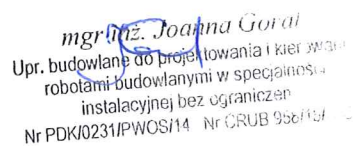 mgr inż. Joanna Goral
Upr. budowlane do projektowania i kierowan
robotami budowlanymi w specjalności
instalacyjnej bez ograniczen
Nr PDK/0231/PWOS/14 Nr CRUB